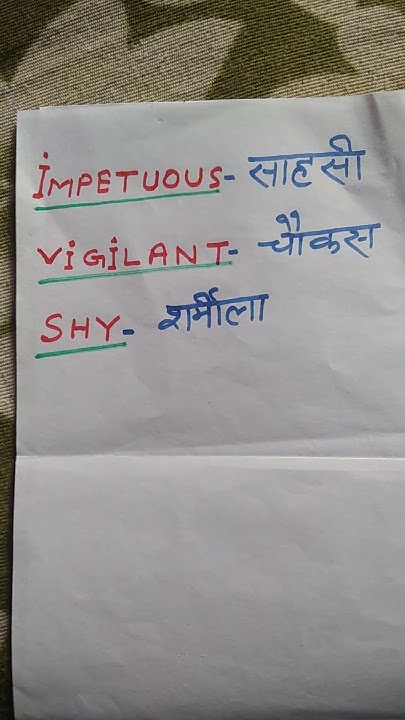 İMPETUOUS- साहसी
ViGiLANT- चौकस
SHY- शर्मीला